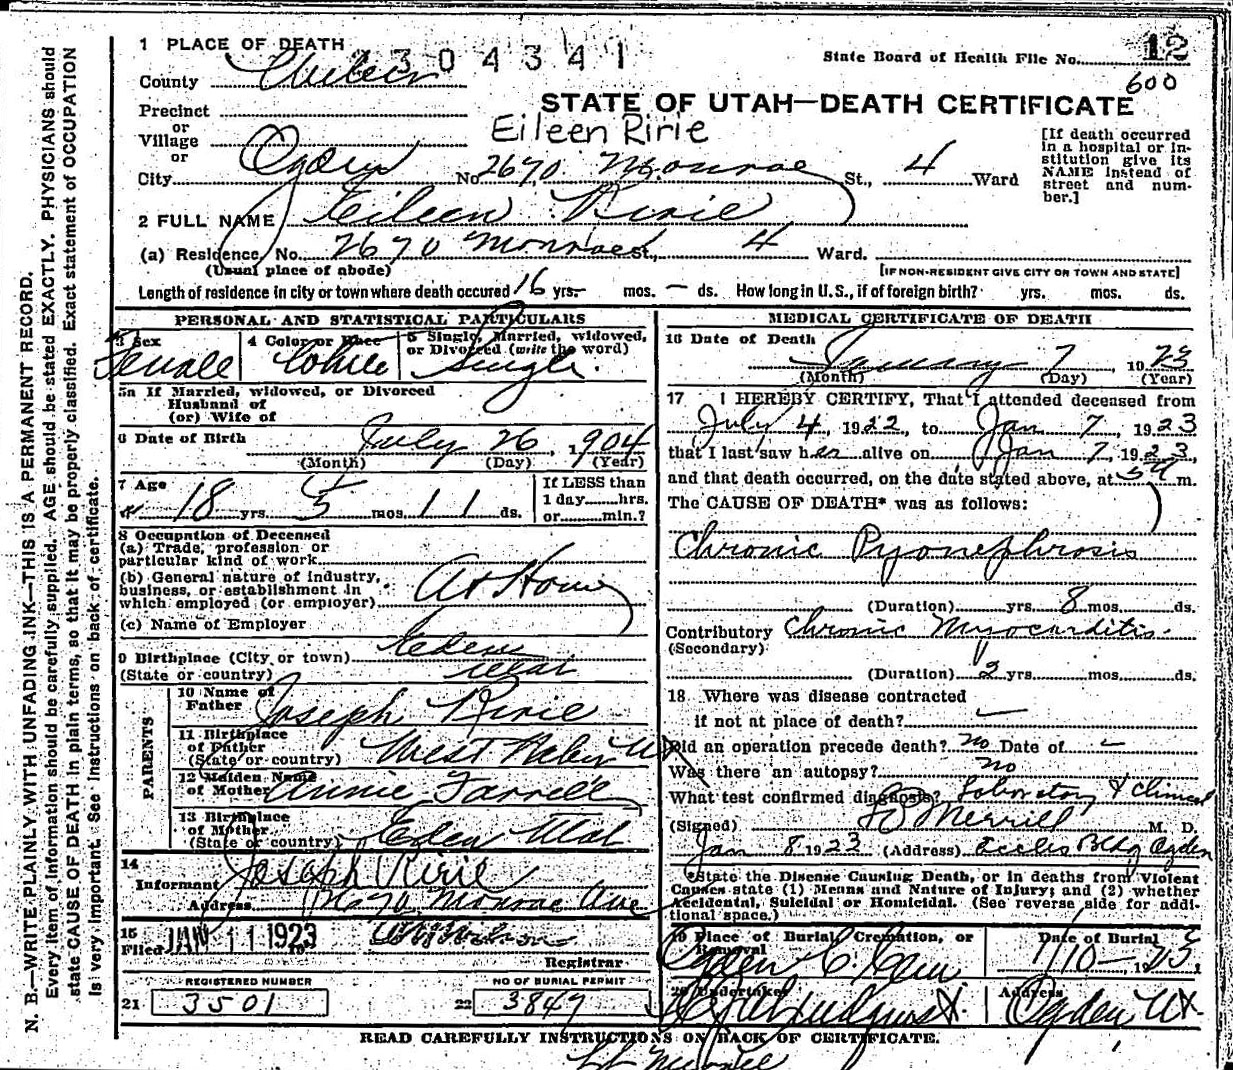 1 PLACE OF DEATH
2304341
State Board of Health File No. 12
600
County Weber
STATE OF UTAH—DEATH CERTIFICATE
Precinct
or
Village
or
Eileen Ririe
[If death occurred in a hospital or institution give its NAME instead of street and number.]
City Ogden No 2670 Monroe St., 4 Ward
2 FULL NAME Eileen Ririe
(a) Residence, No. 2670 Monroe St., 4 Ward.
(Usual place of abode) [IF NON-RESIDENT GIVE CITY OR TOWN AND STATE]
Length of residence in city or town where death occured 16 yrs. - mos. - ds. How long in U. S., if of foreign birth? yrs. mos. ds.
PERSONAL AND STATISTICAL PARTICULARS
3 Sex Female
4 Color or Race White
5 Single, Married, widowed, or Divorced (write the word) Single.
5a If Married, widowed, or Divorced
Husband of
(or) Wife of
6 Date of Birth July 26, 1904
(Month) (Day) (Year)
7 Age 18 yrs. 5 mos. 11 ds.
If LESS than 1 day hrs. or min.?
8 Occupation of Deceased
(a) Trade, profession or particular kind of work
(b) General nature of industry, business, or establishment in which employed (or employer) At Home
(c) Name of Employer
9 Birthplace (City or town) Eden
(State or country) Utah
PARENTS
10 Name of Father Joseph Ririe
11 Birthplace of Father (State or country) West Weber Ut
12 Maiden Name of Mother Annie Farrell
13 Birthplace of Mother (State or country) Eden Utah
14
Informant Joseph Ririe
Address 2670 Monroe Ave
15
Filed JAN 11 1923
Registrar
REGISTERED NUMBER
21 3501
NO OF BURIAL PERMIT
22 3847
MEDICAL CERTIFICATE OF DEATH
16 Date of Death
January 7 1923
(Month) (Day) (Year)
17 I HEREBY CERTIFY, That I attended deceased from
July 4, 1922, to Jan 7, 1923
that I last saw her alive on Jan 7, 1923,
and that death occurred, on the date stated above, at 5 m.
The CAUSE OF DEATH* was as follows:
Chronic Pyonephrosis
(Duration) yrs. 8 mos. ds.
Contributory Chronic Myocarditis.
(Secondary)
(Duration) 2 yrs. mos. ds.
18 Where was disease contracted
if not at place of death? -
Did an operation precede death? no Date of -
Was there an autopsy? no
What test confirmed diagnosis? Laboratory & Clinical
(Signed) Merrill M. D.
Jan 8 1923 (Address) Eccles Bldg Ogden
*State the Disease Causing Death, or in deaths from Violent Causes state (1) Means and Nature of Injury; and (2) whether Accidental, Suicidal or Homicidal. (See reverse side for additional space.)
19 Place of Burial, Cremation, or Removal
Ogden C. Cem
Date of Burial
1/10 - 1923
20 Undertaker
Address
Ogden Ut.
READ CAREFULLY INSTRUCTIONS ON BACK OF CERTIFICATE.
Merrill
N. B.—WRITE PLAINLY WITH UNFADING INK—THIS IS A PERMANENT RECORD.
Every item of information should be carefully supplied. AGE should be stated EXACTLY. PHYSICIANS should
state CAUSE OF DEATH in plain terms, so that it may be properly classified. Exact statement of OCCUPATION
is very important. See instructions on back of certificate.